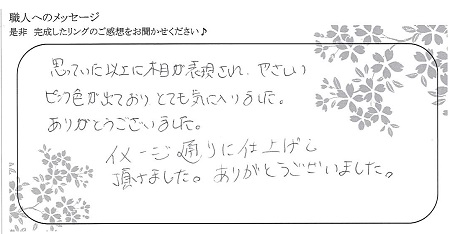 職人へのメッセージ
是非 完成したリングのご感想をお聞かせください♪
思っていた以上に木目が表現され、やさしい
ピンク色が出ており とても気に入りました。
ありがとうございました。
イメージ通りに仕上げて
頂けました。ありがとうございました。